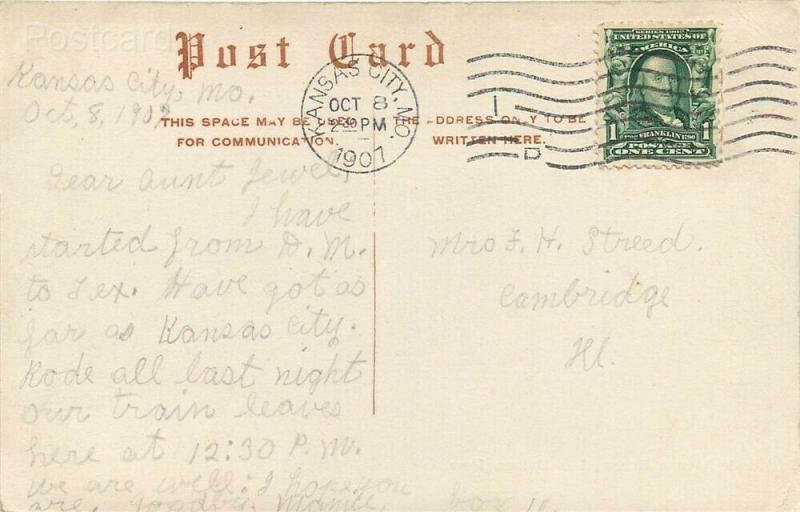 Postcard
Post Card
Kansas City, Mo.
Oct, 8, 1907
THIS SPACE MAY BE USED
FOR COMMUNICATION.
THE ADDRESS ONLY TO BE
WRITTEN HERE.
KANSAS CITY, MO.
OCT 8
2 30 PM
1907
1
D
SERIES 1902
UNITED STATES OF
AMERICA
FRANKLIN
1 1
POSTAGE
ONE CENT
Dear Aunt Jewel,
I have
started from D. M.
to Tex. Have got as
far as Kansas City.
Rode all last night
our train leaves
here at 12:30 P.M.
we are well: I hope you
are. Goodby, Mamie,
box 10.
Mrs F. H. Streed.
Cambridge
Ill.